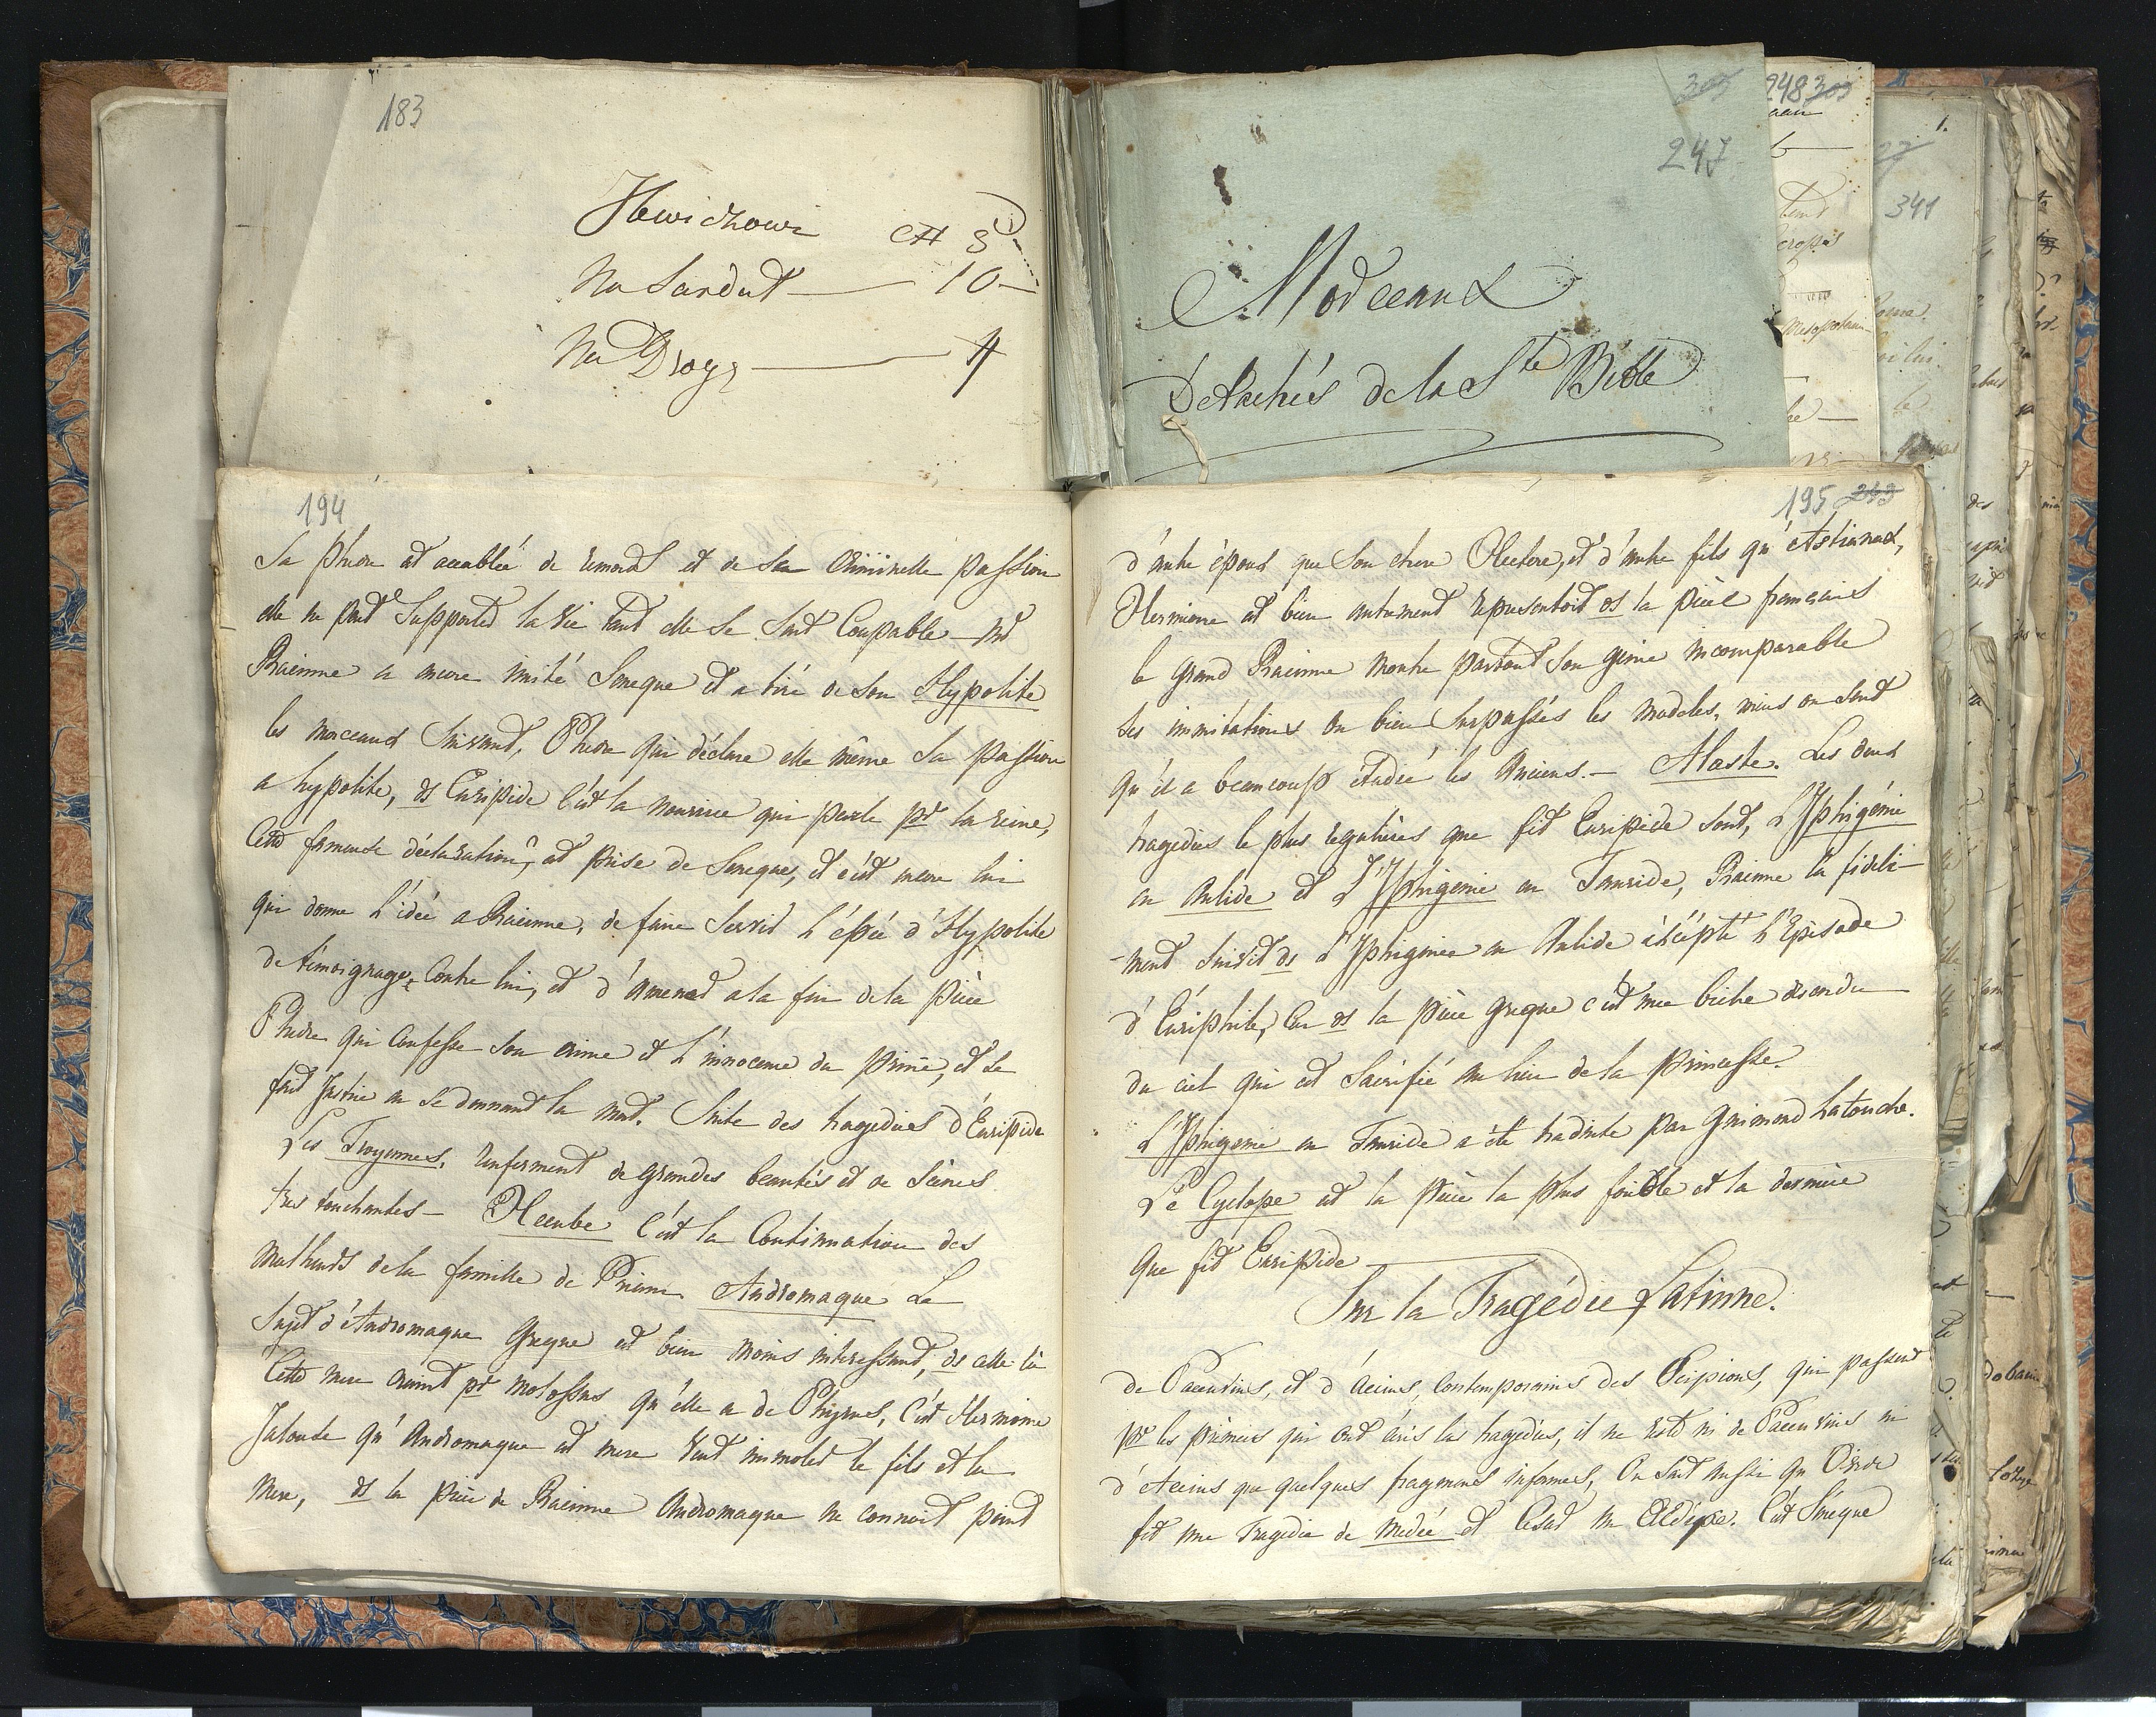 183
Na Sandał — 10 —
Na Drogę — 4
305
247
Morceaux
Detachés de la Ste Bible
248 305
341
1.
194
Sa Phedre est accablée de remords et de sa criminelle passion
elle ne peut supporter la vie tant elle se sent Coupable — Mr
Racinne a encore imité Seneque et a tiré de son Hypolite
les morceaux suivant, Phedre qui déclare elle même sa passion
a hypolite, ds Euripide c'est la nourrice qui parle pr la reine,
Cette fameuse déclaration, est prise de Seneque, et c'est encore lui
qui donne l'idée a Racinne, de faire servir l'épée d'Hypolite
de témoignage, Contre lui, et d'amener a la fin de la pièce
Phedre qui Confesse son crime et l'innocence du prince, et se
fait Justice en se donnant la mort. Suite des tragedies d'Euripide
Les Troyennes. renferment de grandes beautés et de Scènes
tres touchantes — Hecube C'est la Continuation des
malheurs de la famille de Priam Andromaque Le
Sujet d'Andromaque Greque est bien moins interessant, ds celle-là
Cette mere craint pr molossus qu'elle a de Phyrrus, C'est Hermione
Jalouse qu'Andromaque est mere veut immoler le fils et la
mere, ds la pièce de Racinne Andromaque ne connoit point
195 243
d'autre époux que son cher Hectore, et d'autre fils qu'Astianax,
Hermione est bien autrement representoit ds la pièce francaise
le grand Racinne montre partout son genie incomparable
Ses immitations on bien surpassés les modeles, mais on sent
qu'il a beaucoup étudié les Anciens. — Alceste. Les deux
tragedies le plus regulières que fit Euripide sont, L'Iphigénie
en Aulide et L'Iphigenie en Tauride, Racinne la fidele-
-ment suivit ds L'Iphigenie en Aulide éxcépté l'Episode
d'Euriphile, Car ds la pièce greque c'est une biche descendu
du ciel qui est Sacrifié au lieu de la princesse.
L'Iphigenie en Tauride a été traduite par Guimond Latouche.
Le Cyclope est la pièce la plus foible et la derniere
que fit Euripide —
Sur la Tragédie Latinne.
de Pacuvius, et d'Accius, Contemporains des Scipions, qui passent
pr les prémiers qui ont écris las tragedies, il ne reste ni de Pacuvius ni
d'Accius que quelques fragmens informes, On sait aussi qu'Ovide
fit une Tragedie de medée et Cesar un Œdipe. C'est Sèneque